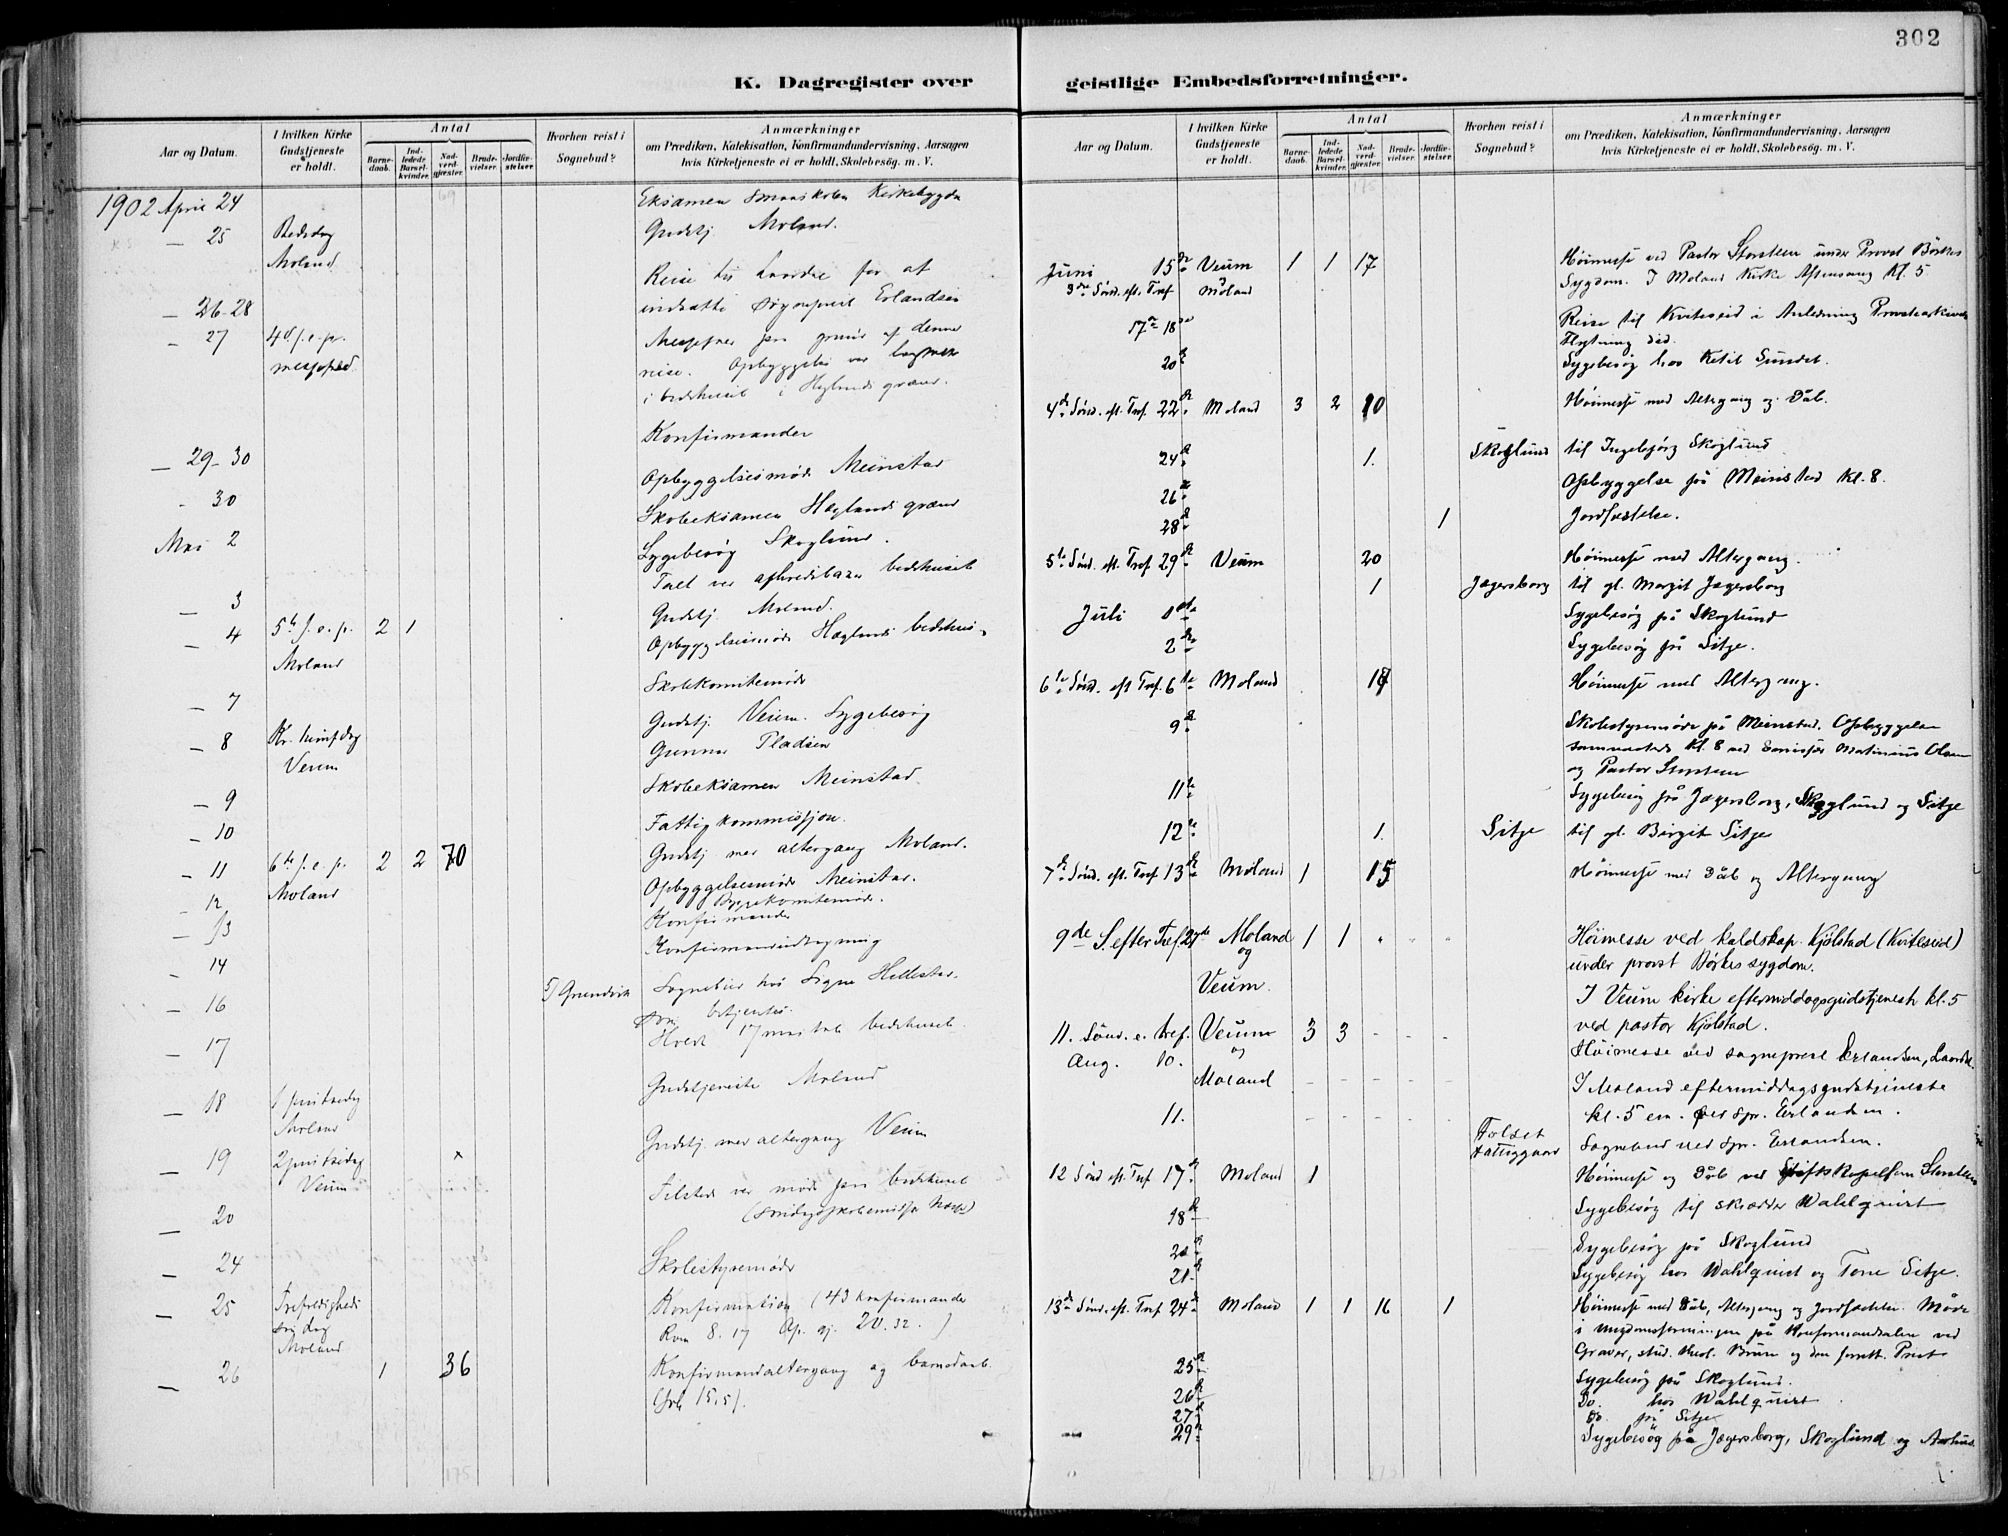 302
K. Dagregister over
geistlige Embedsforretninger.
Aar og Datum.
I hvilken Kirke Gudstjeneste er holdt.
Antal
Barnedaab.
Indledede Barselkvinder.
Nadverdgjæster.
Brudevielser.
Jordfæstelser.
Hvorhen reist i Sognebud?
Anmærkninger
om Prædiken, Katekisation, Konfirmandundervisning, Aarsagen
hvis Kirketjeneste ei er holdt, Skolebesøg. m. V.
1902 April 24 Eksamen Smaaskolen Kirkebygda
— 25 Bededag Gudstj. Moland.
Moland
Reise til Laardal for at
— 26-28 indsætte Sogneprest Erlandsen
— 27 4de s. e. p. Messefald paa grund af denne
messefald reise. Opbyggelse var
i bedehuset i Høglunds grænd.
— 29-30 Konfirmander
- 30 Opbyggelsesmøde Meinstad
Mai 2 Skoleeksamen Høglunds grænd
Sygebesøg Skoglund.
bedehuset
— 3
— 4 5te s. e. p. 2 1 Gudstj. Moland.
Moland Opbyggelsesmøde Høglunds bedehus
— 7 Skolekomitemøde
— 8 Kr. himfdag Gudstj. Veum. Sygebesøg
Veum Gunnar Pladsen
— 9 Skoleeksamen Meinstad
— 10 Fattigkommissjon.
— 11 6te s. e. p. 2 2 70 Gudstj. med altergang Moland.
Moland
— 12 Opbyggelsesmøde Meinstad.
— 13 Konfirmander
— 14
— 16 Grundvik Sognebud hos Signe
— 17 17 mai bedehuset.
— 18 1 pintsedag Gudstjeneste Moland
Moland
— 19 2 pintsedag x Gudstj. med altergang Veum
Veum
— 20 Tilstede ved møde paa bedehuset
— 24 Skolestyremøde
— 25 Trefoldigheds Konfirmation (43 konfirmander
søndag Rom 8. 17 Ap. gj. 20. 32.)
Moland
— 26 1 36 Konfirmandaltergang og barnedaab.
(Joh 15.5).
175
Aar og Datum.
I hvilken Kirke Gudstjeneste er holdt.
Antal
Barnedaab.
Indledede Barselkvinder.
Nadverdgjæster.
Brudevielser.
Jordfæstelser.
Hvorhen reist i Sognebud?
Anmærkninger
om Prædiken, Katekisation, Konfirmandundervisning, Aarsagen
hvis Kirketjeneste ei er holdt, Skolebesøg. m. V.
Juni 15de Veum 1 1 17 Høimesse ved Pastor Storsteen under Provst Børkes
3die Sønd. eft. Tref Moland Sygdom. I Moland Kirke Aftensang Kl. 5
17de 18de Reise til Kviteseid i Anledning Provstearkivets
Flytning did.
20de Sygebesøg hos Ketil Sundet.
4de Sønd. eft. Tref. 22de Moland 3 2 10 Høimesse med Altergang og Dåb.
24de 1. Skoglund til Ingebjørg Skoglund
26de Opbyggelse på Meinstad Kl. 8.
28de 1 Jordfæstelse.
5te Sønd. eft. Tref 29de Veum 20 Høimesse med Altergang.
1 Jægersborg til gl. Margit Jægersborg
Juli 1ste Sygebesøg på Skoglund
2den Sygebesøg på Sitje.
6te Sønd. eft Tref. 6te Moland 18 Høimesse med Altergang.
9de Skolestyremøde på Meinstad. Opbyggelse
sammesteds Kl. 8 ved Emissær Matinius Olsen
og Pastor Storsteen
11te Sygebesøg på Jægersborg, Skoglund og Sitje
12te 1. Sitje til gl. Birgit Sitje
7de Sønd. eft. Tref 13de Moland 1 15 Høimesse med Dåb og Altergang
9de S. efter Tref. 27de Moland 1 1 " " " Høimesse ved kaldskap. Kjølstad (Kviteseid)
og under provst Børkes sygdom.
Veum. I Veum kirke eftermiddagsgudstjeneste kl. 5
ved pastor Kjølstad.
11. Sønd. e. tref. Veum 3 3 - - - Høimesse ved sogneprest Erlandsen, Laardal.
Aug. 10. og
Moland - - - - - I Moland eftermiddagsgudstjeneste
kl. 5 em. ved spr. Erlandsen.
11. - - - - Folset fattiggaard Sognebud ved spr. Erlandsen.
12 Sønd eft. Tref 17de Moland 1 Høimesse og Dåb ved Stiftskapellan Storsteen
18de Sygebesøg til skrædder Wahlquist
20de Sygebesøg på Skoglund
21de Sygebesøg hos Wahlquist og Tone Sitje.
13de Sønd. eft. Tref 24de Moland 1 1 16 1 Høimesse med Dåb, Altergang og Jordfæstelse. Møde
i Ungdomsforeningen på Konfirmandsalen ved
Graver, stud. theol. Bruun og den forrett. Prest
25de Sygebesøg på Skoglund.
26de Do. hos Wahlquist
27de Do. på Sitje
29de Sygebesøg på Jægersborg, Skoglund og